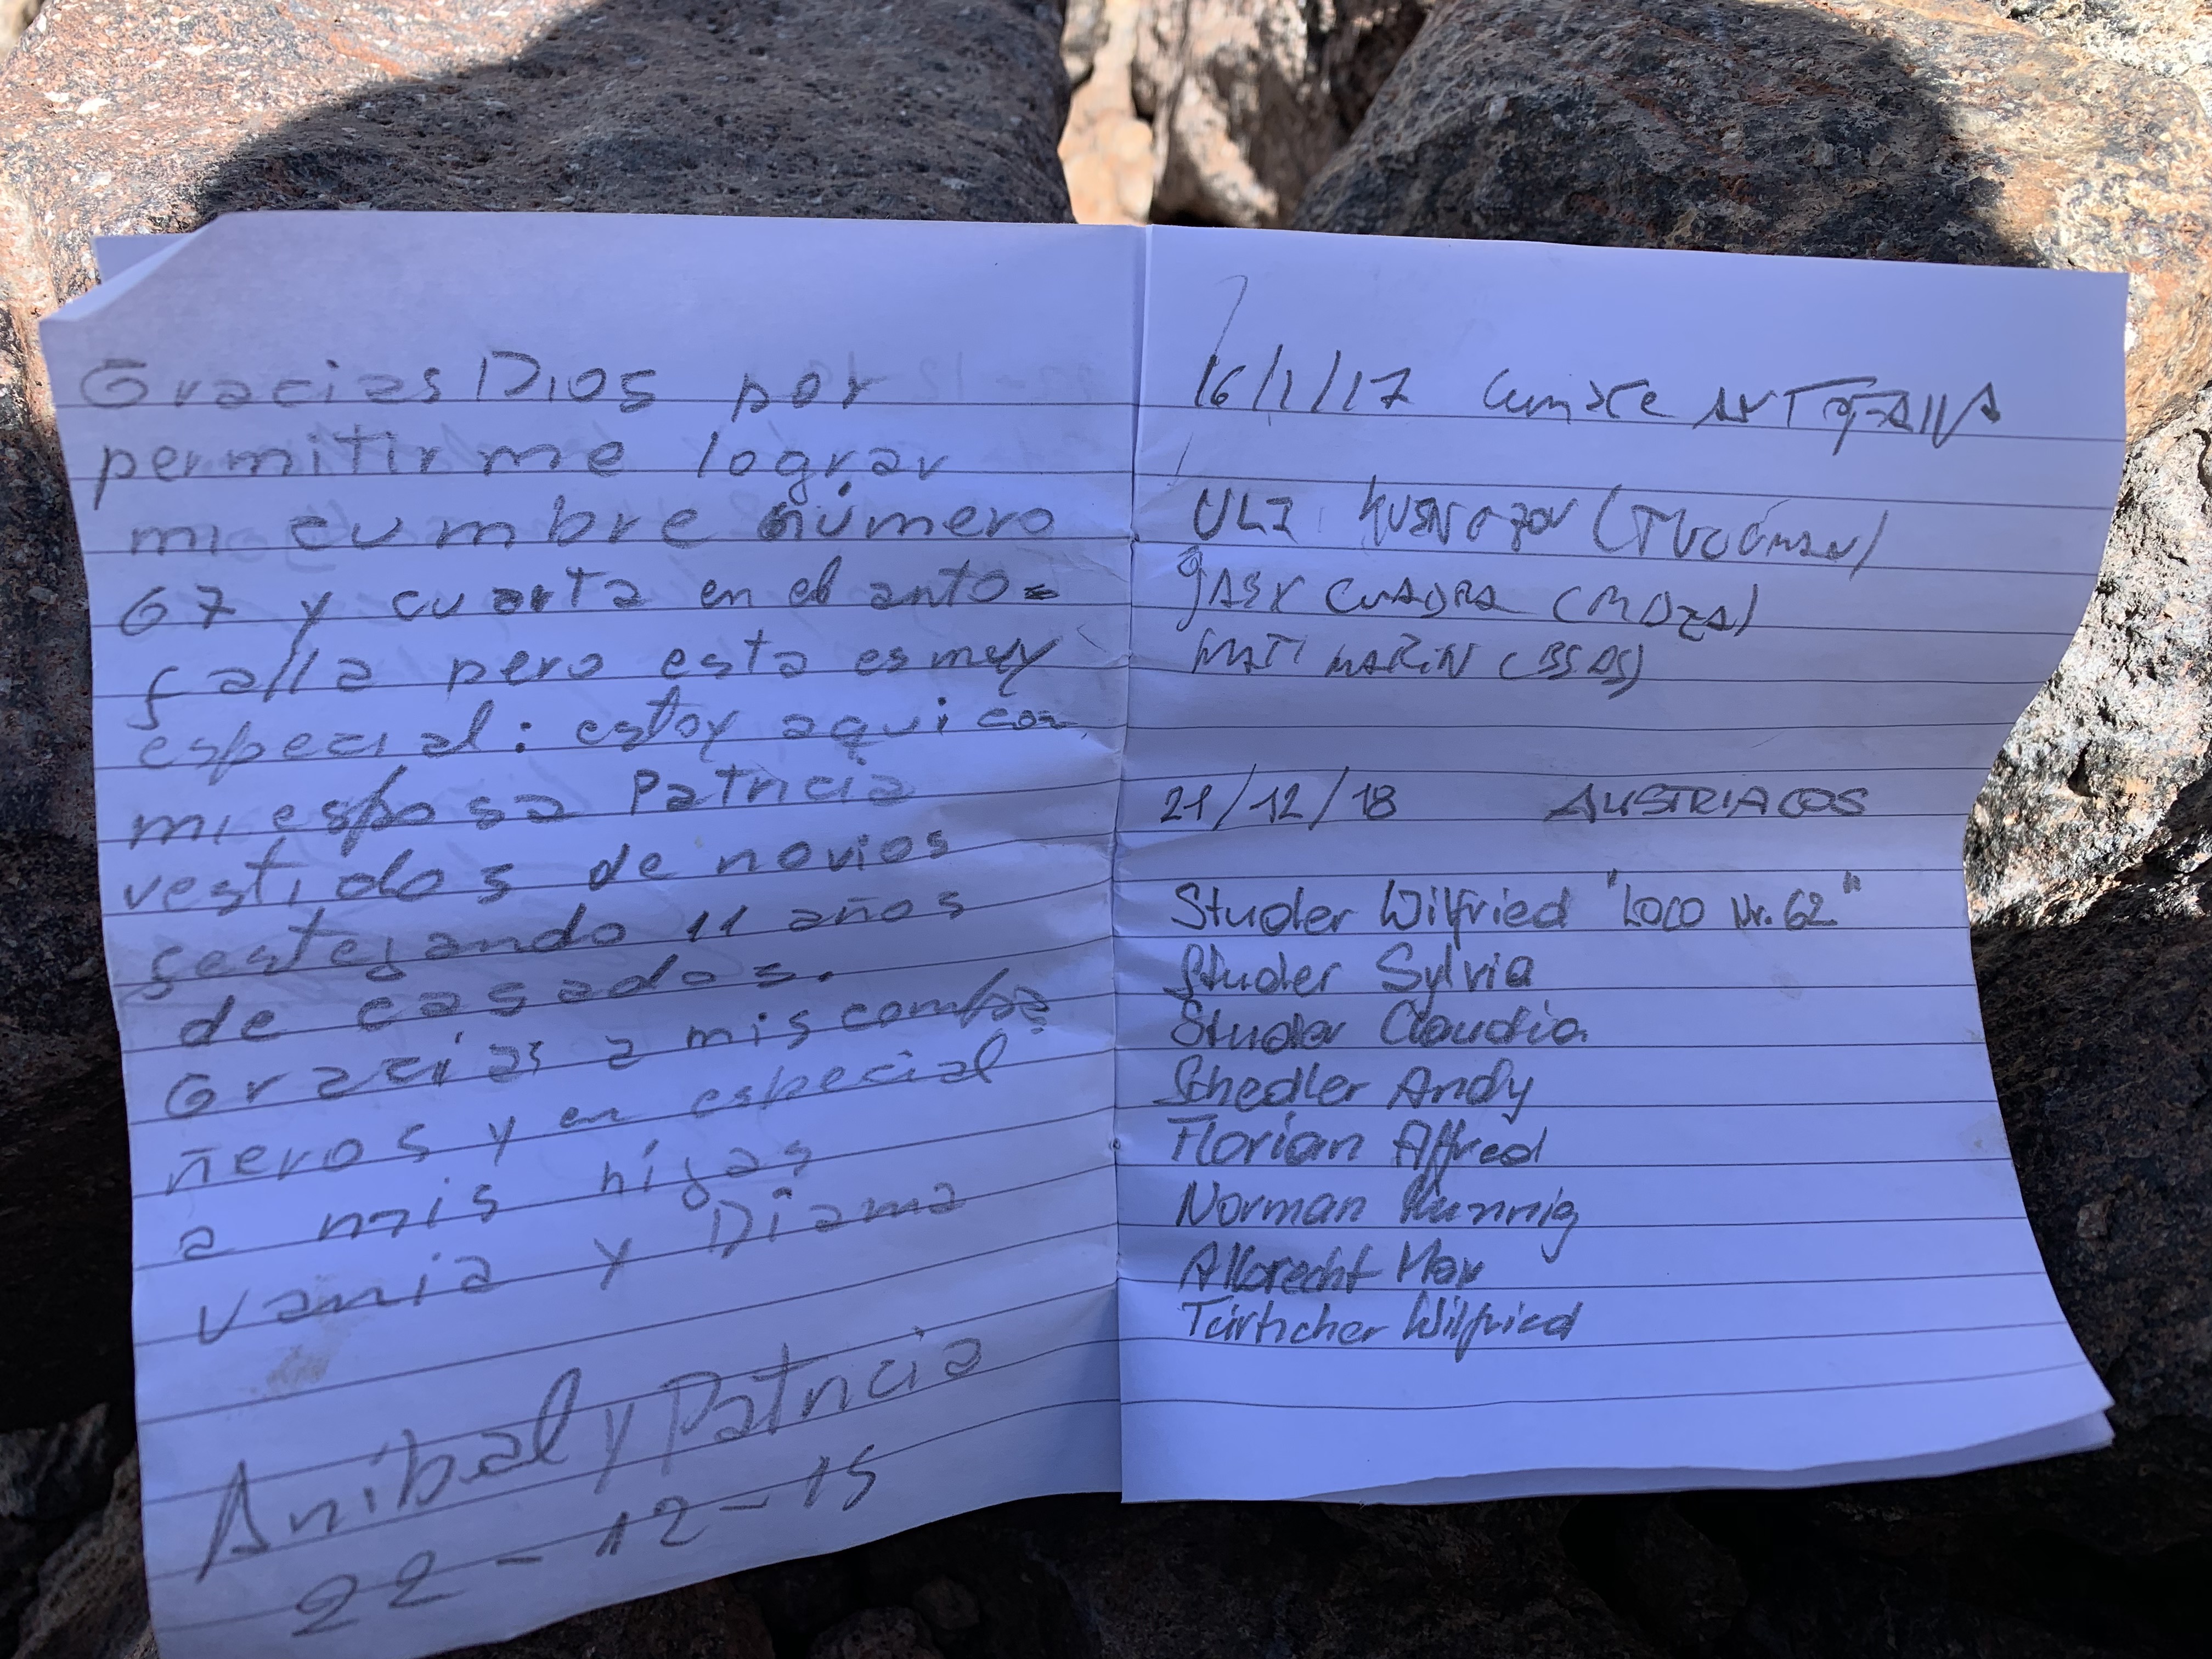 Gracias Dios por
permitirme lograr
mi cumbre número
67 y cuarta en el anto=
falla pero esta es muy
especial: estoy aqui con
mi esposa Patricia
vestidos de novios
festejando 11 años
de casados.
Gracias a mis compa
ñeros y en especial
a mis hijas
Vania y Diama
Anibal y Patricia
22-12-15
16/1/17 Cumbre ANTOFALLA
(TUCUMAN)
CUADRA (MDZA)
MATI MARIN (BSAS)
21/12/18 AUSTRIACOS
Studer Wilfried "LOCO Nr. 62"
Studer Sylvia
Studer Claudia
Schedler Andy
Florian Alfred
Norman
Albrecht Max
Türtscher Wilfried